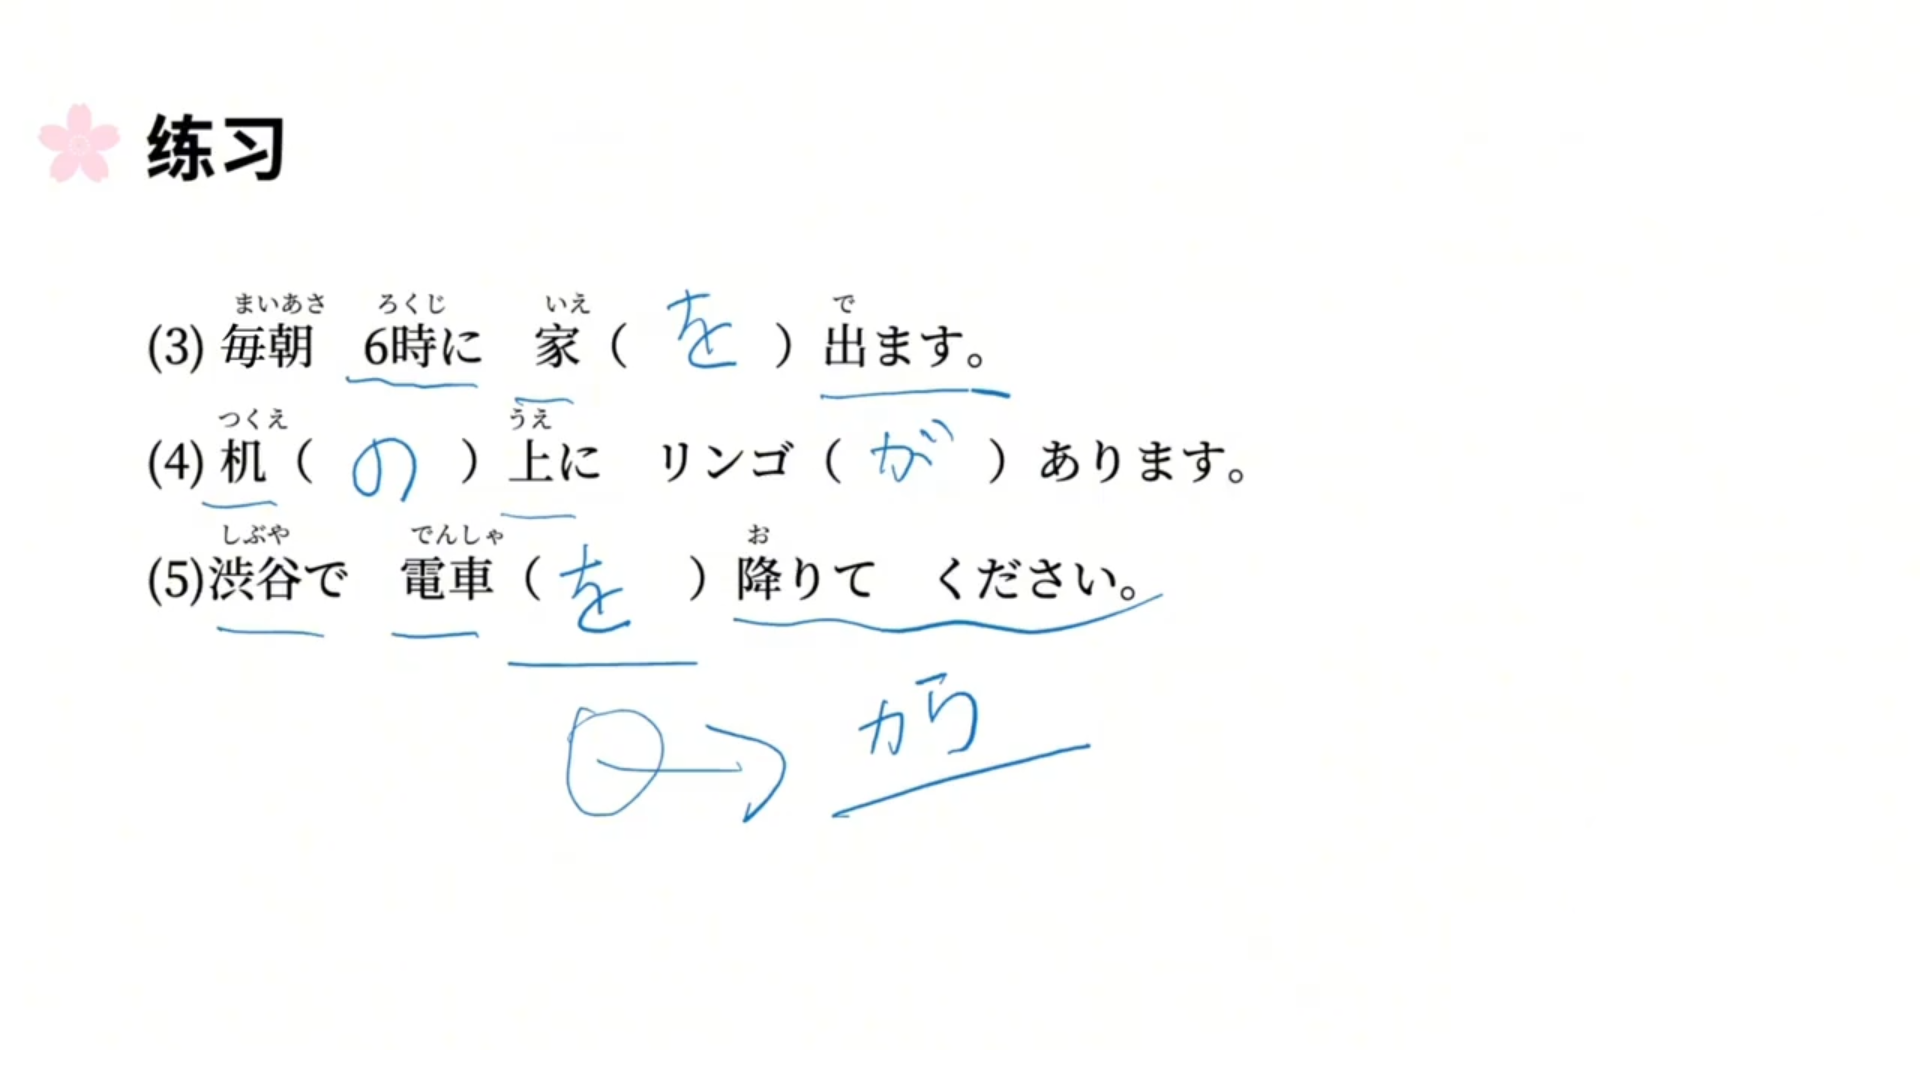 练习
まいあさ ろくじ いえ で
(3) 毎朝　6時に　家（ を ）出ます。
つくえ うえ
(4) 机（ の ）上に　リンゴ（ が ）あります。
しぶや でんしゃ お
(5)渋谷で　電車（ を ）降りて　ください。
から